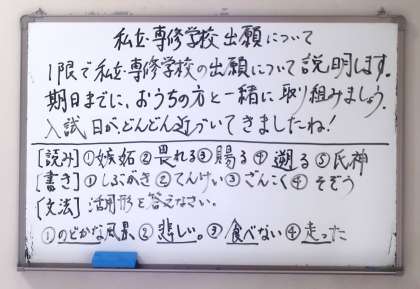 私立・専修学校出願について
1限で私立・専修学校の出願について説明します。
期日までに、おうちの方と一緒に取り組みましょう。
入試日がどんどん近づいてきましたね!
[読み]①嫉妬②畏れる③賜る④遡る⑤氏神
[書き]①しぶがき②てんけい③ざんこく④そぞう
[文法]活用形を答えなさい。
①のどかな風景②悲しい。③食べない④走った